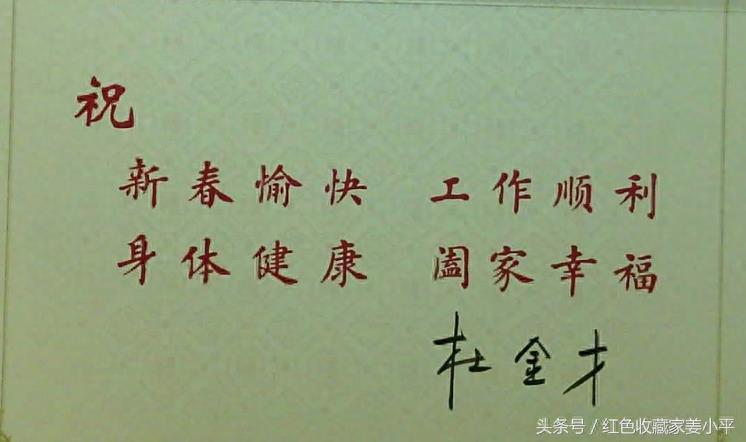 祝
新春愉快 工作顺利
身体健康 阖家幸福
杜金才
头条号／红色收藏家姜小平